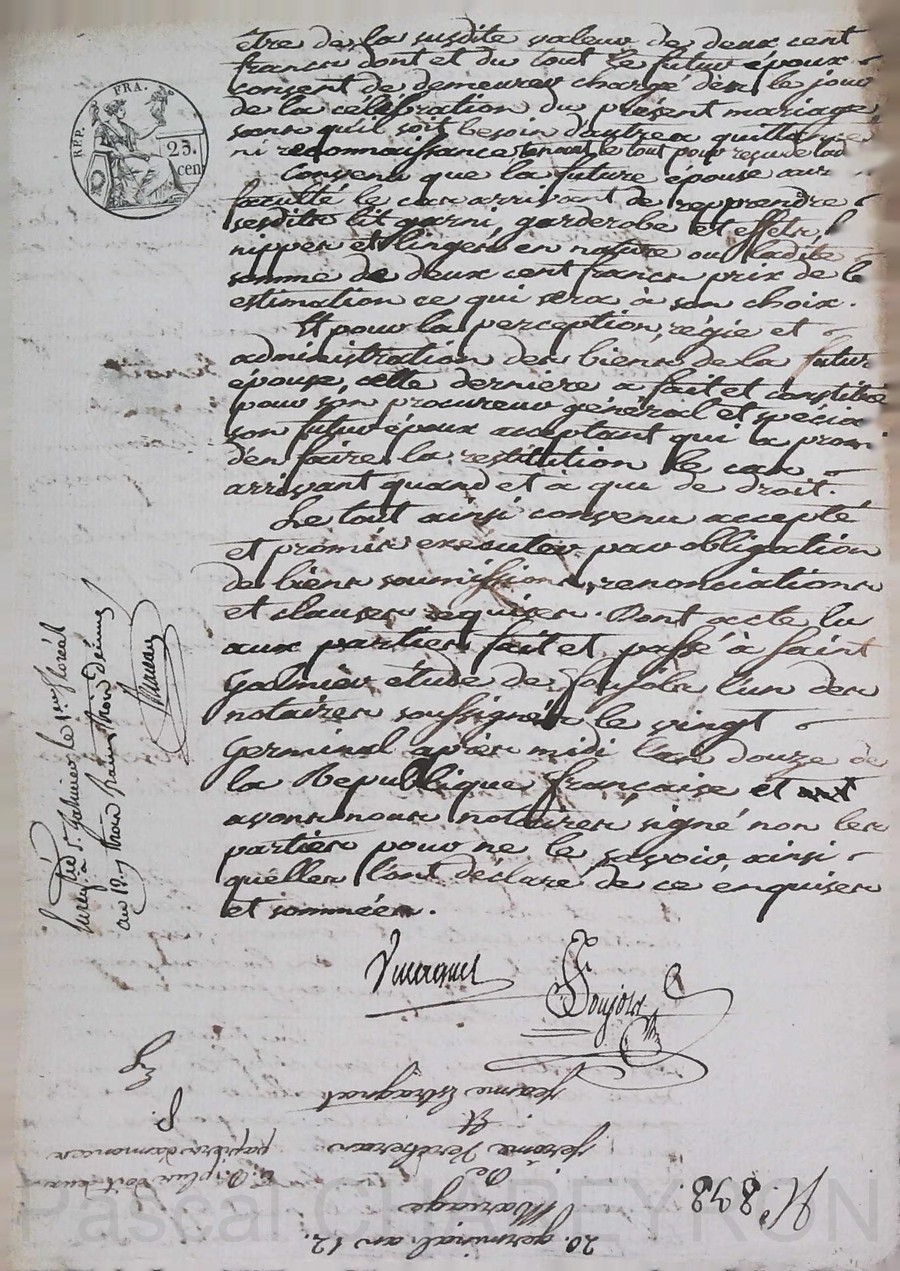 REP. FRA.
25.
cen
être de la susdite valeur de deux cent
francs dont et du tout le futur époux
consent de demeurer chargé dès le jour
de la célébration du présent mariage
sans quil soit besoin dautres quittances
ni reconnaissances tenant le tout pour reçu
Convenu que la future épouse aur
faculté le cas arrivant de repprendre
sesdits lit garni, garderobe et effets,
nippes et linges, en nature ou ladite
somme de deux cent francs prix de le
estimation ce qui sera à son choix.
Et pour la perception, régie et
administration des biens de la futur
épouse, cette derniere a fait et constitué
pour son procureur général et spécia
son futur époux acceptant qui a promi
d'en faire la restitution le cas
arrivant quand et a qui de droit.
Le tout ainsi convenu accepté
et promis exécuter par obligation
de biens soumissions, renonciations
et clauses requises. Dont acte lu
aux parties fait et passé à Saint
Galmier étude de Soujols l'un des
notaires soussignés le vingt
Germinal après midi l'an douze de
la Republique française et
avons nous notaires signé non les
parties pour ne le savoir ainsi
quelles l'ont déclaré de ce enquises
et sommées.
Soujols
Jeanne
Et
Jerome
De
Mariage
20. germinal an 12.
N. 838
Pascal CHAPEYRON